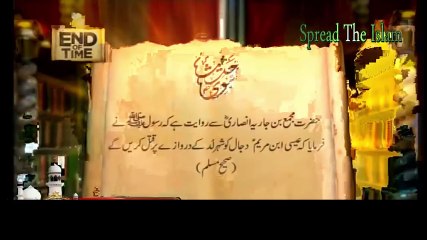 END
OF
TIME
Spread The Islam
حدیث نبوی
حضرت مجمع بن جاریہ انصاریؓ سے روایت ہے کہ رسول ﷺ نے
فرمایا کہ عیسی ابن مریمؑ دجال کو شہر لد کے دروازے پر قتل کریں گے
(صحیح مسلم)